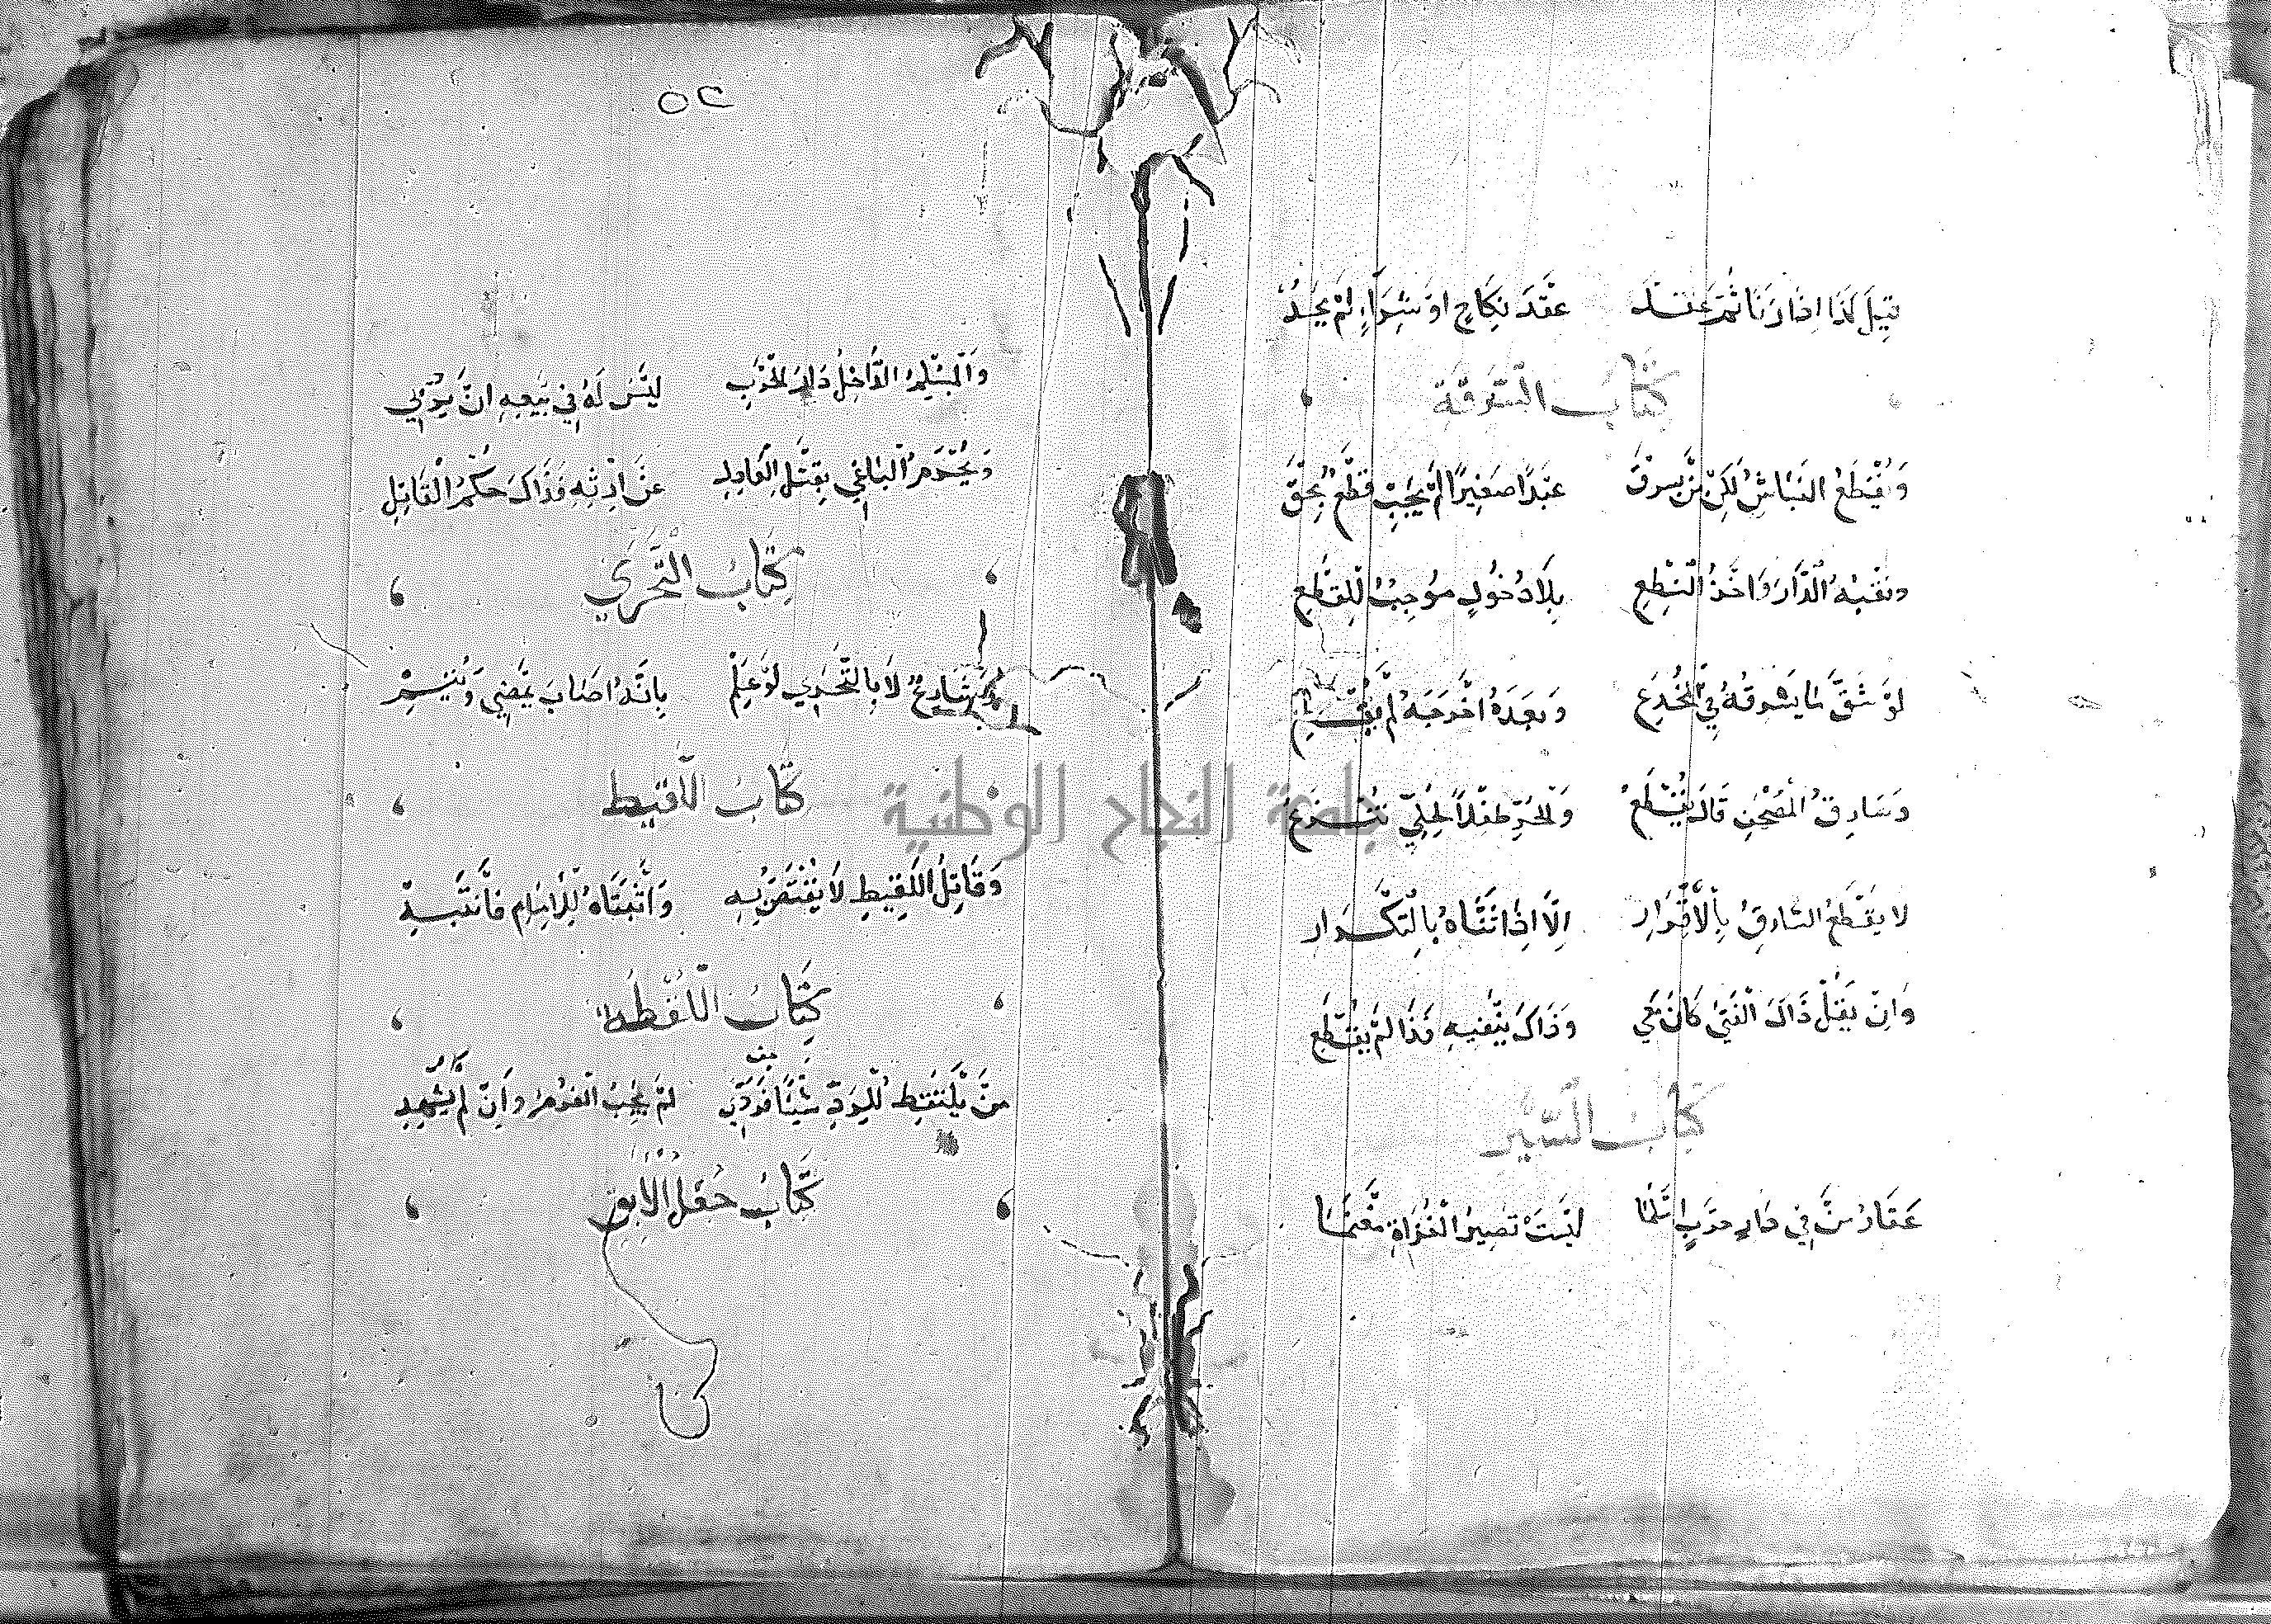 قِيلَ كَذَا اِذَا زَنَا ثُمَّ عَقَدْ عَقْدَ نِكَاحٍ اَوْ شِرَاءٍ لَمْ يُحَدْ
كِتَابُ السَّرِقَة
وَيُقْطَعُ النَبَّاشُ لَكِنْ مَنْ سَرَقْ عَبْدًا صَغِيرًا لَمْ يَجِبْ قَطْعٌ بِحَقْ
وَنَقْبُهُ الدَّارَ وَاَخْذُ السِّطْعِ بِلَا دُخُولٍ مُوجِبٌ لِلْقَطْعِ
لَوْ شَقَّ مَا يَسْرِقُهُ فِي الْمُخْدَعِ وَبَعْدَهُ اَخْرَجَهُ لَمْ يُقْطَعِ
وَسَارِقُ الْمُصْحَفِ قَالَ يُقْطَعُ وَالْحُرِّ طِفْلًا لِحُلِيّ
لا يُقْطَعُ السَّارِقُ بِالْاِقْرَارِ اِلَّا اِذَا ثَنَّاهُ بِالتِّكْرَارِ
وَاِنْ يَقُلْ ذَاكَ الْفَتَى كَانَ مَعِي وَذَاكَ يَنْفِيهِ فَذَا لَمْ يُقْطَعِ
كِتَابُ السِّيَر
عَقَارُ مَنْ فِي دَارِ حَرْبٍ اَسْلَمَا لَيْسَتْ تَصِيرُ الْغُزَاةِ مَغْنَمَا
٥٢
وَالْمُسْلِمُ الدَّاخِلُ دَارَ الْحَرْبِ لَيْسَ لَهُ فِي بَيْعِهِ اَنْ يُرْبِي
وَيُحْرَمُ الْبَاغِي بِقَتْلِ الْعَادِلِ عَنْ اِرْثِهِ فَذَاكَ حُكْمُ الْقَاتِلِ
كِتَابُ التَّحَرِّي
شَارِعٌ لَا بِالتَّحَرِّي لَوْ عَلِمْ بِاَنَّهُ اَصَابَ يَمْضِي وَيُتِمْ
كِتَابُ اللَّقِيط
وَقَاتِلُ اللَّقِيطِ لَا يُقْتَصُّ بِهِ وَاَثْبَتَاهُ لِلْاِمَامِ فَانْتَبِهْ
كِتَابُ اللُّقَطَة
مَنْ يَلْتَقِطْ لِلرَّدِّ شَيْئًا فَرَدِي لَمْ يَجِبُ الْغُرْمُ وَاِنْ لَمْ يُشْهِدِ
كِتَابُ جُعْلِ الْاٰبِق
جامعة النجاح الوطنية